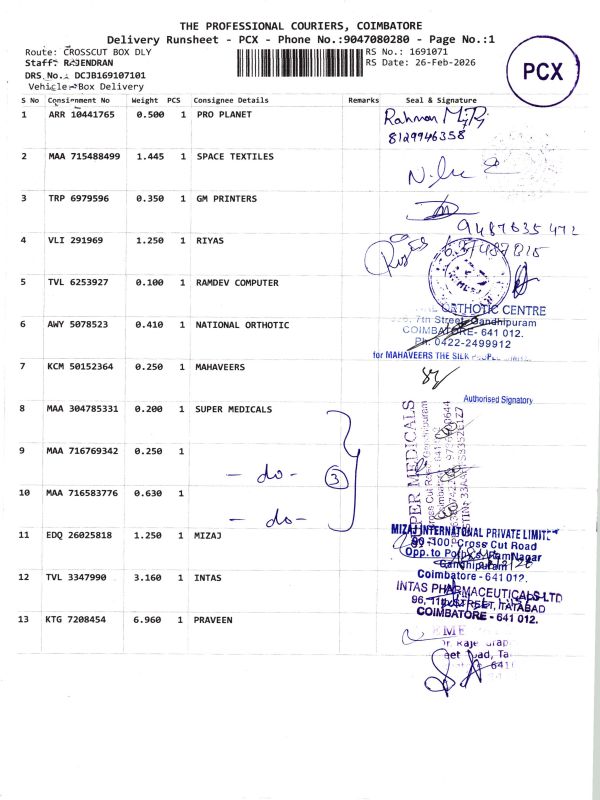 THE PROFESSIONAL COURIERS, COIMBATORE
Delivery Runsheet - PCX - Phone No.:9047080280 - Page No.:1
Route: CROSSCUT BOX DLY
RS No.: 1691071
Staff: RAJENDRAN
RS Date: 26-Feb-2026
DRS No.: DCJB169107101
Vehicle: Box Delivery
PCX
S No Consignment No Weight PCS Consignee Details Remarks Seal & Signature
1 ARR 10441765 0.500 1 PRO PLANET Rahman
8129946358
2 MAA 715488499 1.445 1 SPACE TEXTILES
3 TRP 6979596 0.350 1 GM PRINTERS
9487635472
4 VLI 291969 1.250 1 RIYAS
5 TVL 6253927 0.100 1 RAMDEV COMPUTER
6 AWY 5078523 0.410 1 NATIONAL ORTHOTIC
CATHOTIC CENTRE
7th Street, Gandhipuram
COIMBATORE - 641 012.
Ph: 0422-2499912
for MAHAVEERS THE SILK
7 KCM 50152364 0.250 1 MAHAVEERS
Authorised Signatory
8 MAA 304785331 0.200 1 SUPER MEDICALS
9 MAA 716769342 0.250 1
- do - 3
10 MAA 716583776 0.630 1
- do -
SUPER MEDICALS
Cross Cut Road, Gandhipuram
11 EDQ 26025818 1.250 1 MIZAJ
MIZAJ INTERNATIONAL PRIVATE LIMITED
90-100, Cross Cut Road
Opp. to
RamNagar
Gandhipuram
Coimbatore - 641 012.
12 TVL 3347990 3.160 1 INTAS
INTAS PHARMACEUTICALS LTD
96, 11th STREET, TATABAD
COIMBATORE - 641 012.
13 KTG 7208454 6.960 1 PRAVEEN